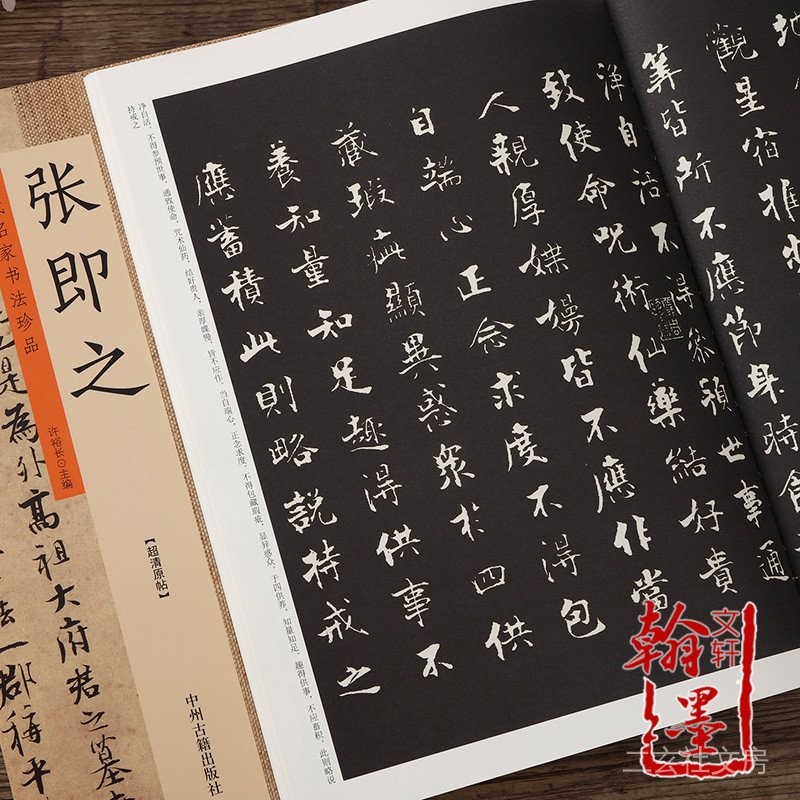 地
觀星宿推
算皆所不應節身時食
淨自活不得參預世事通
致使命呪術仙藥結好貴
人親厚媟嫚皆不應作當
自端心正念求度不得包
藏瑕疵顯異惑衆於四供
養知量知足趣得供事不
應蓄積此則略說持戒之
净自活。不得参预世事，通致使命，咒术仙药，结好贵人，亲厚媟嫚，皆不应作。当自端心，正念求度，不得包藏瑕疵，显异惑众。于四供养，知量知足，趣得供事，不应畜积。此则略说
持戒之
张即之
名家书法珍品
许裕长⊙主编
【超清原帖】
中州古籍出版社
是為外高祖大府君之墓
法一郡
平
翰墨
文轩
文房